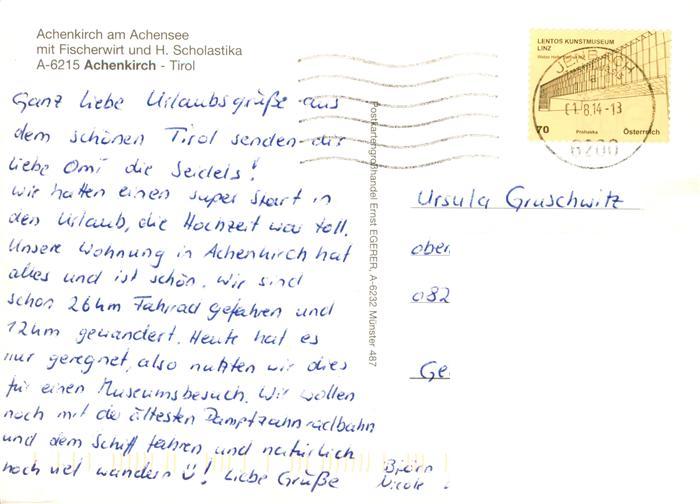 Achenkirch am Achensee
mit Fischerwirt und H. Scholastika
A-6215 Achenkirch - Tirol
Ganz liebe Urlaubsgrüße aus
dem schönen Tirol senden dir
liebe Omi die Seidels!
Wir hatten einen super Start in
den Urlaub, die Hochzeit war toll.
Unsere Wohnung in Achenkirch hat
alles und ist schön. Wir sind
schon 26km Fahrrad gefahren und
12km gewandert. Heute hat es
nur geregnet, also nutzten wir dies
für einen Museumsbesuch. Wir wollen
noch mit der ältesten Dampfzahnradbahn
und dem Schiff fahren und natürlich
noch viel wandern Ü! Liebe Grüße
Björn
Nicole
Postkartengroßhandel Ernst EGERER, A-6232 Münster 487
LENTOS KUNSTMUSEUM
LINZ
70
Prohaska
Österreich
JENBACH
01.8.14-13
6200
Ursula Gruschwitz
ober
082
Ge